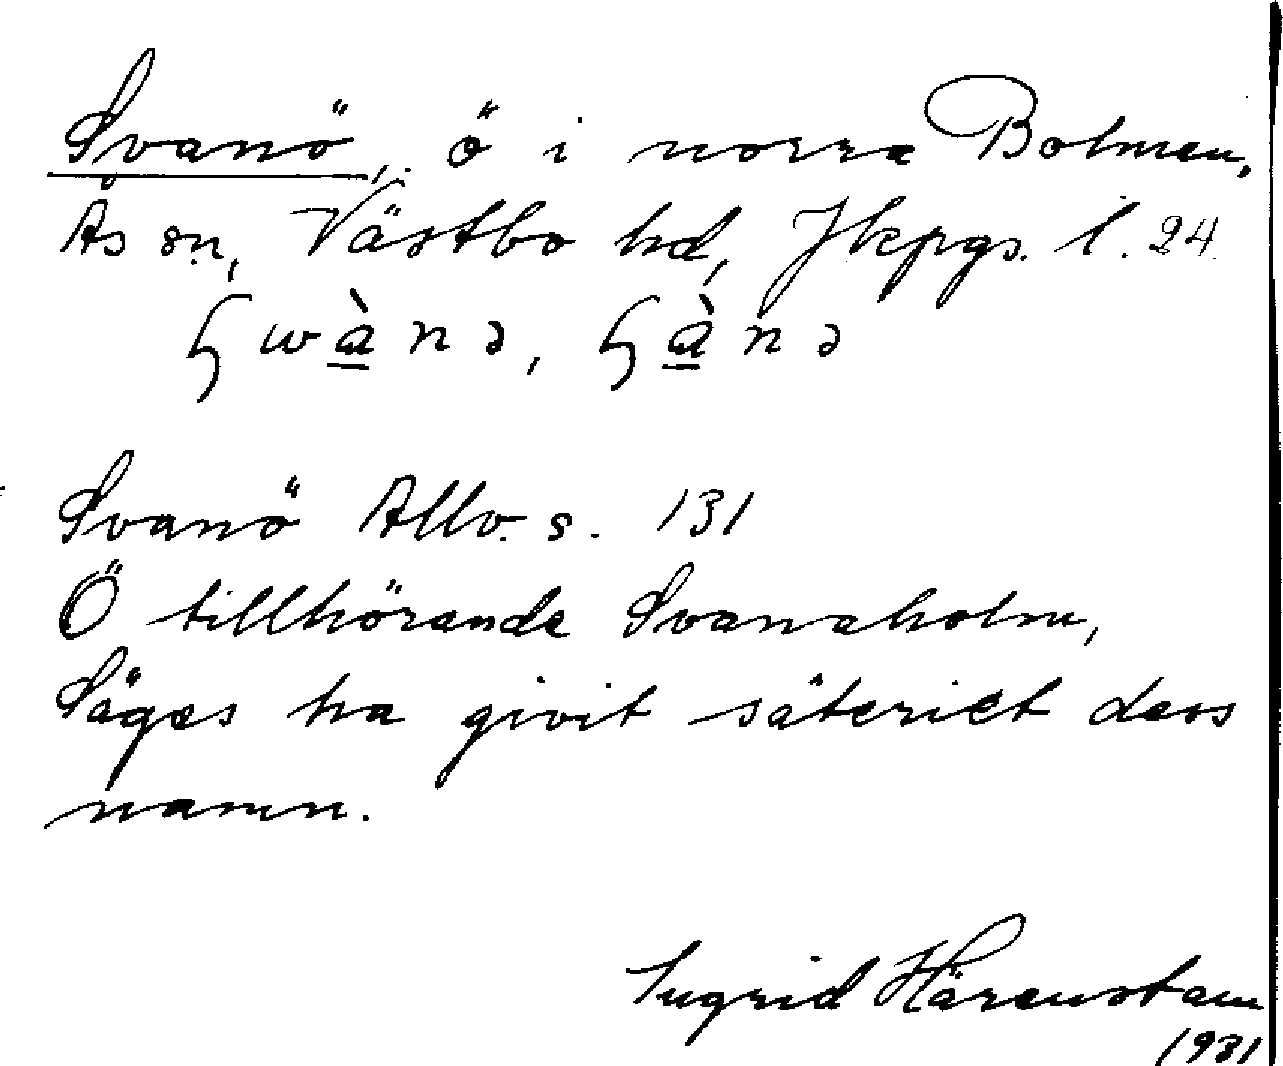 Svanö, ö i norra Bolmen,
Ås sn, Västbo hd, Jkpgs. l. 24
ɧwà̲nə, ɧà̲nə
Svanö Allv. s. 131
Ö tillhörande Svanaholm,
Säges ha givit säteriet dess
namn.
Ingrid Härenstam
1931